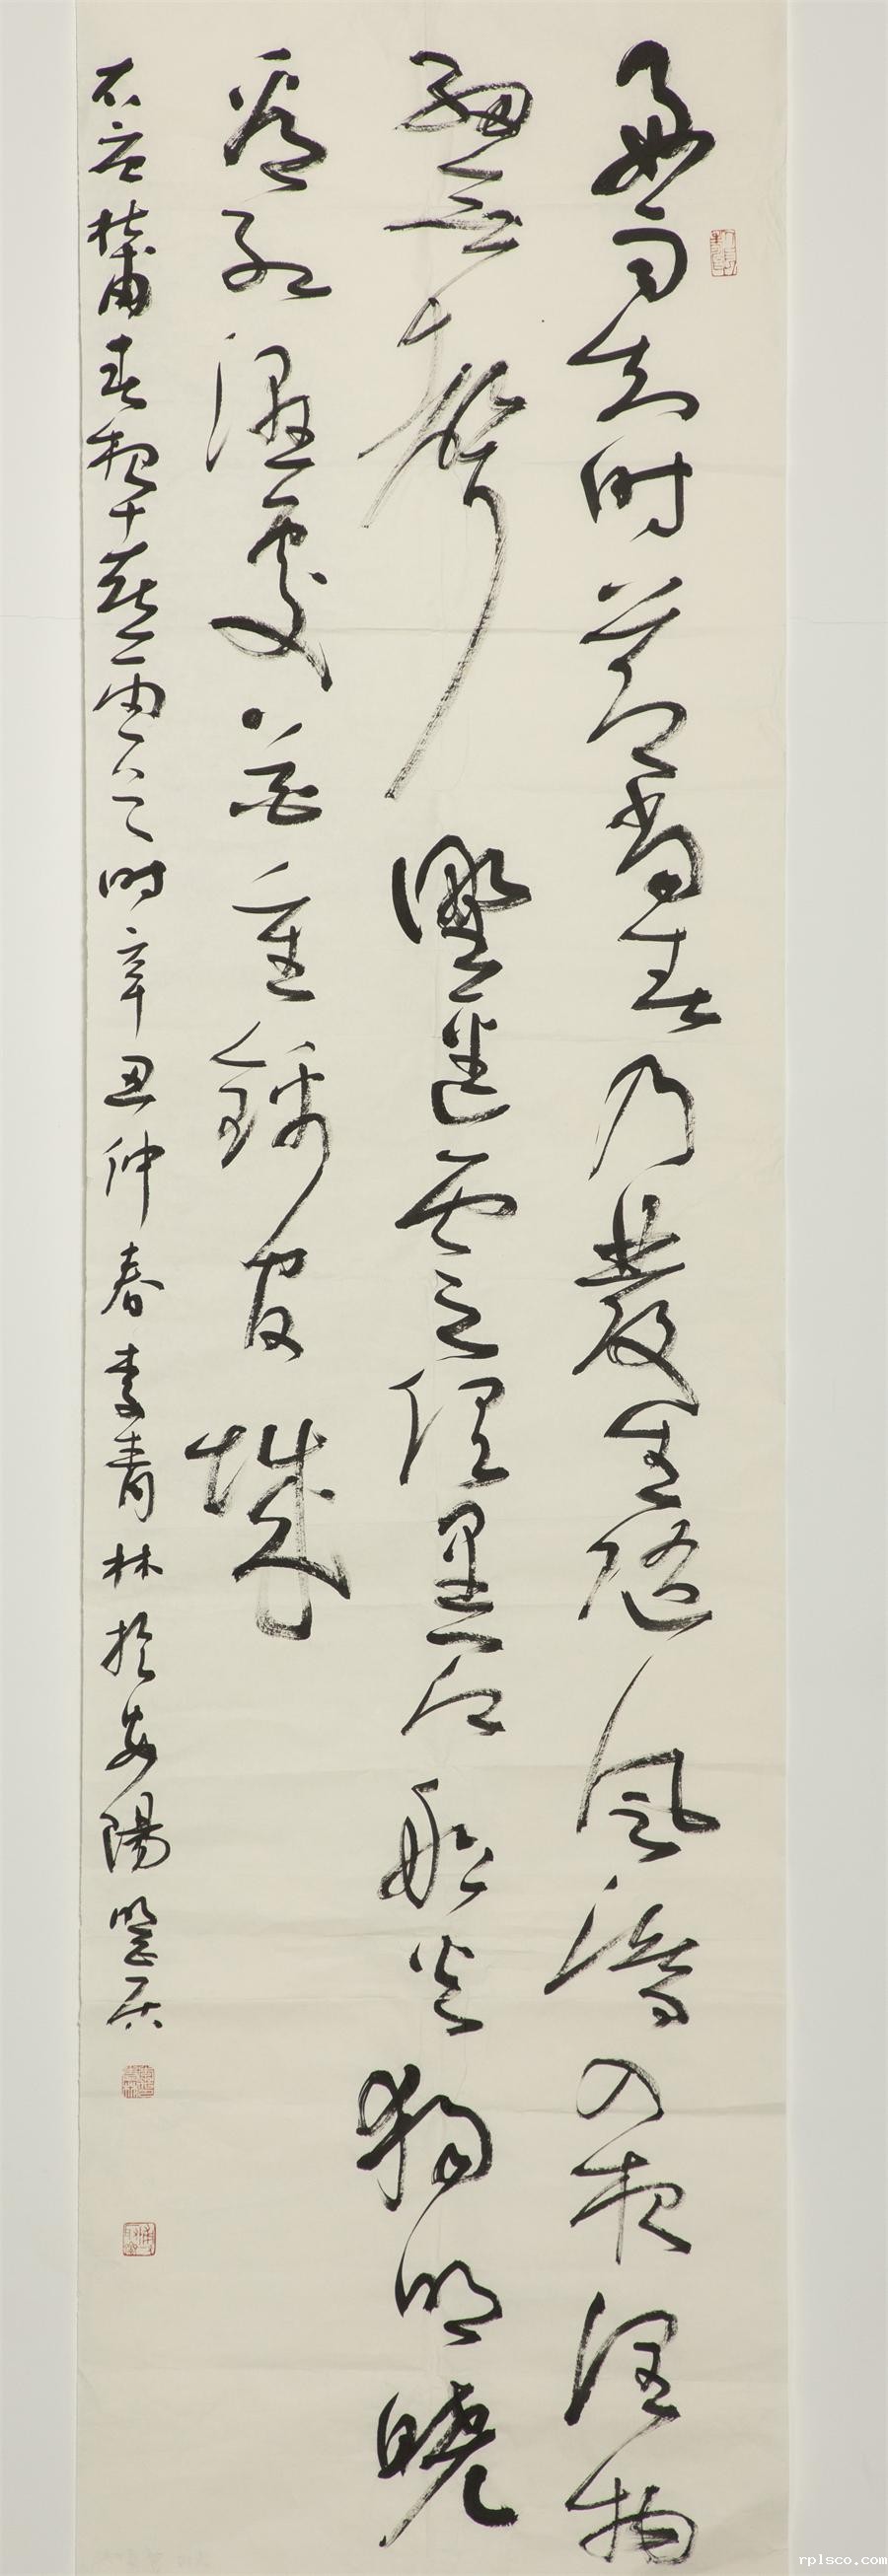 好雨知时节当春乃發生随风潜入夜润物
细无声野径云俱黑江船火独明晓
看红湿處花重锦官城
右录杜甫春夜喜雨之时辛丑仲春李青林於安陽
rplsco.com